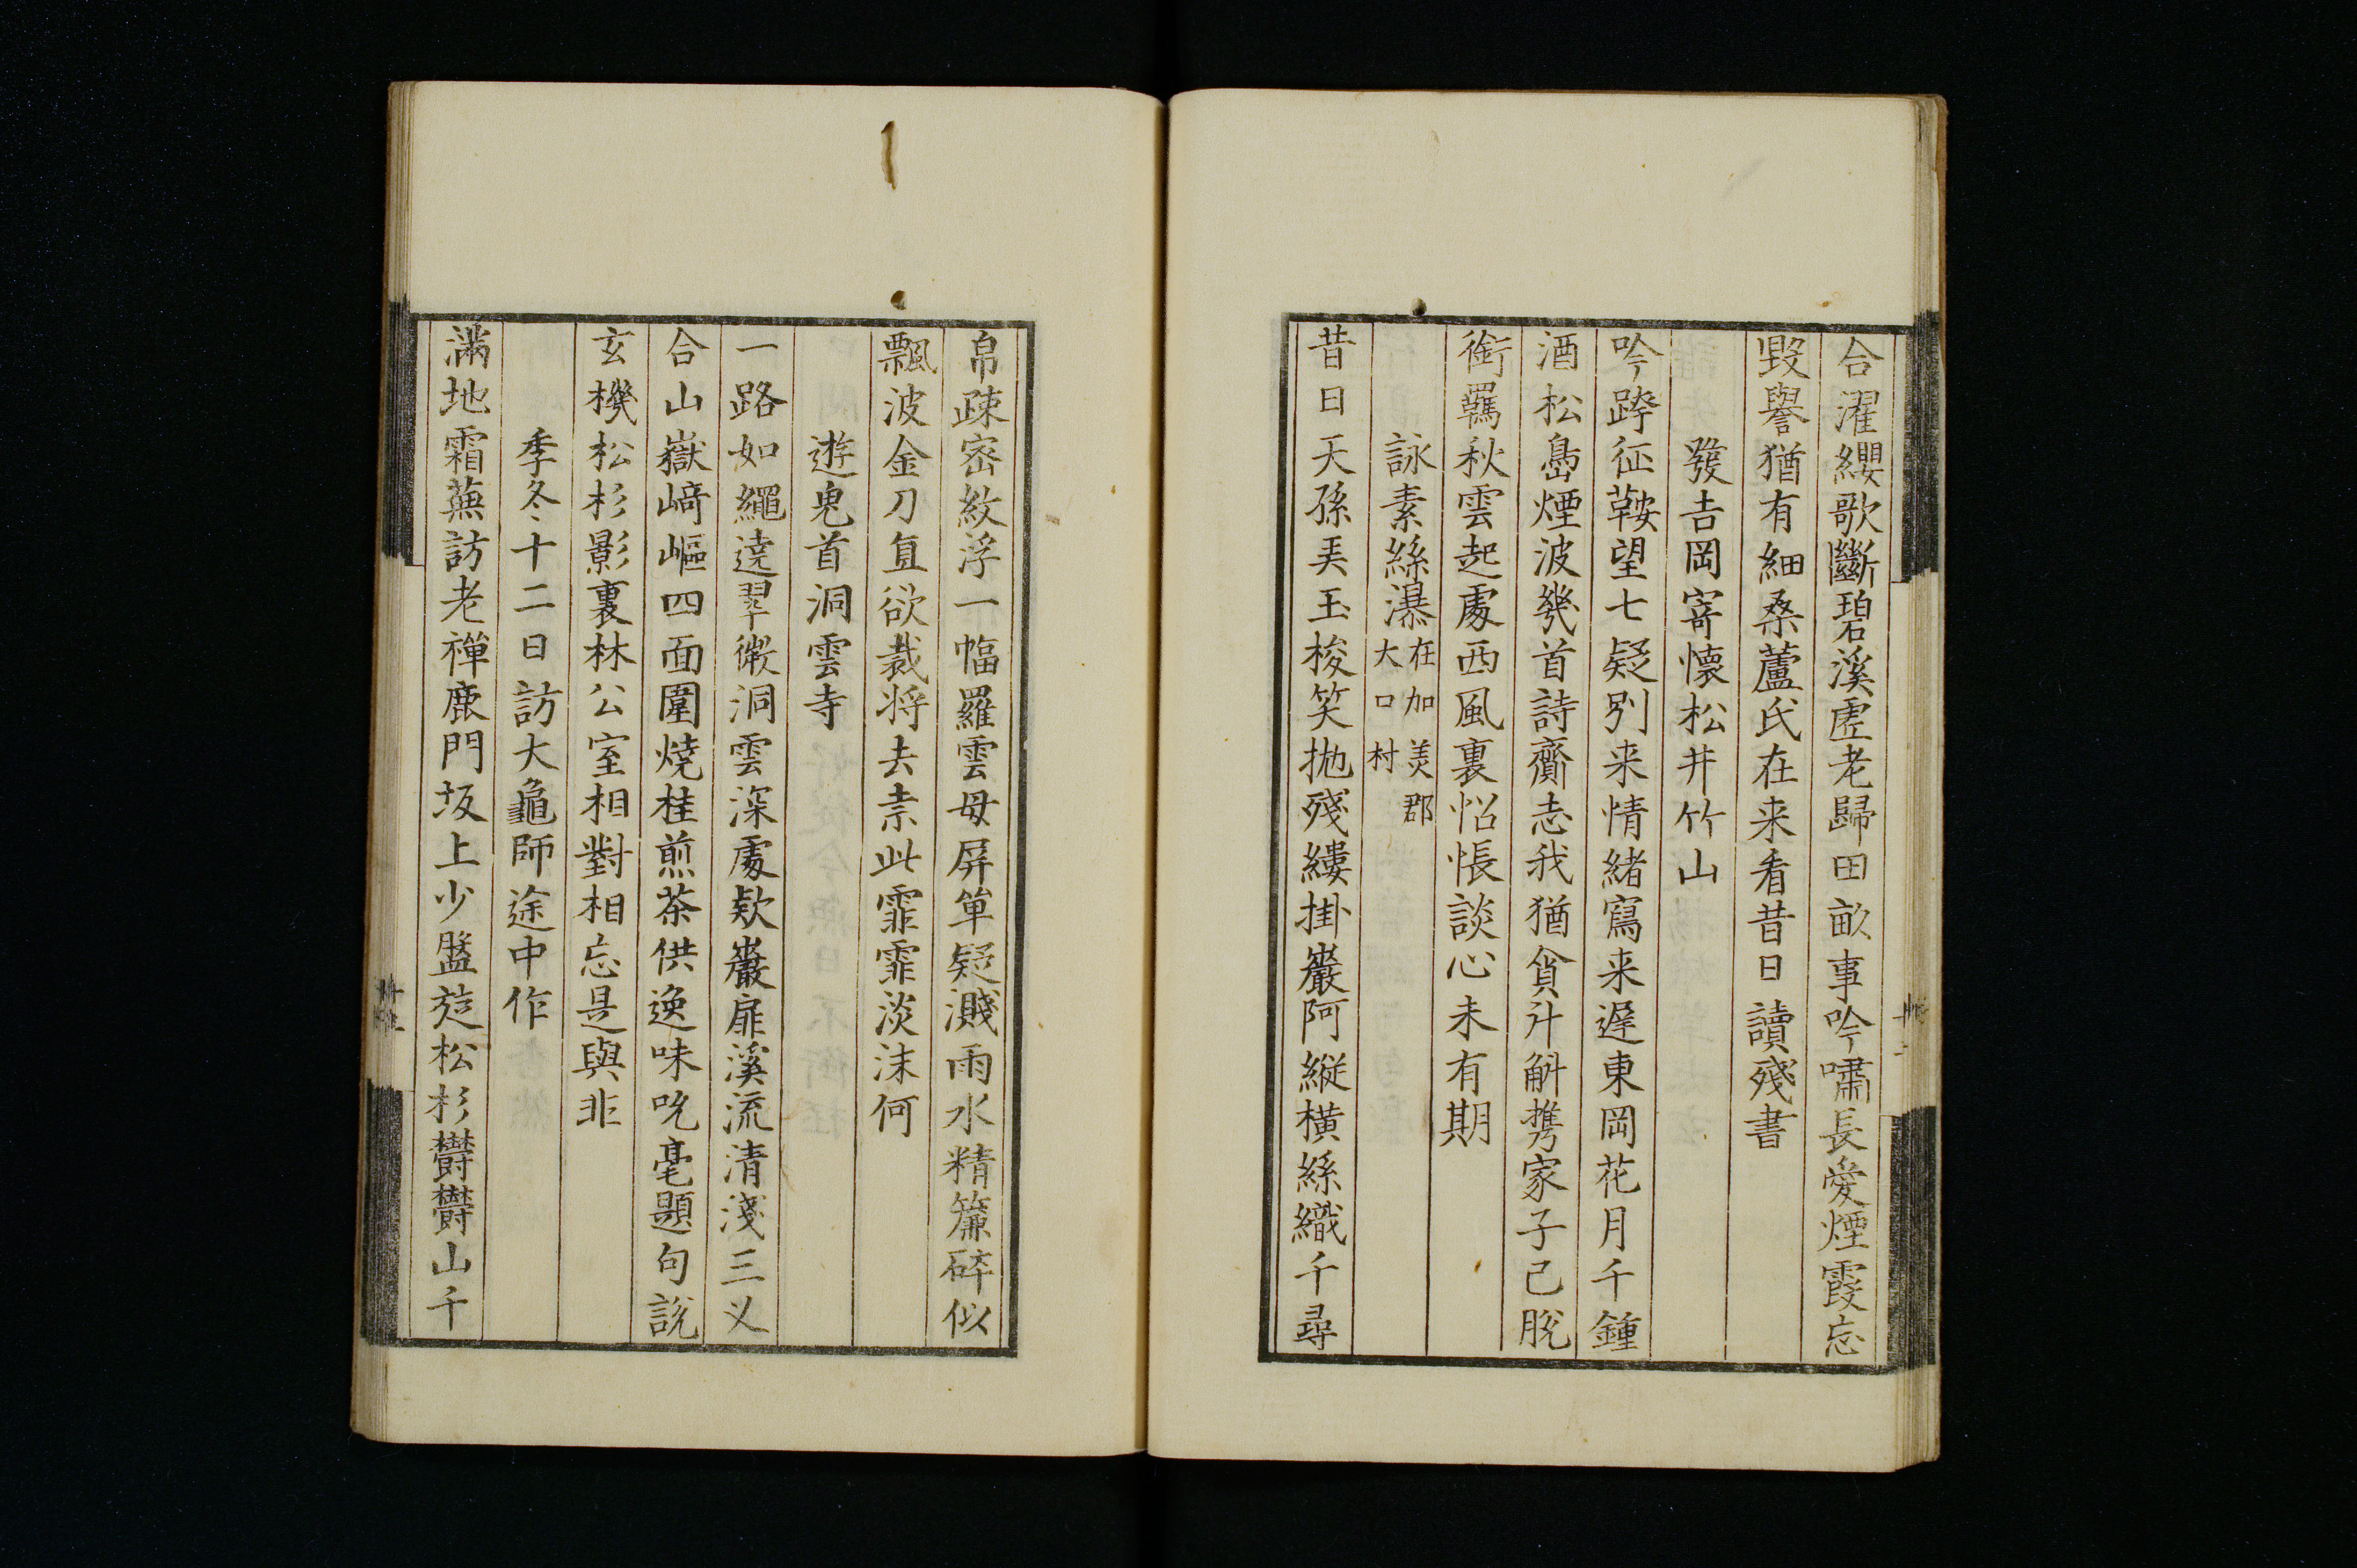 合濯纓歌斷碧溪虗老歸田畝事吟嘯長愛煙霞忘
毀譽猶有細桑蘆氏在来看昔日讀殘書
發吉岡寄懷松井竹山
吟跨征鞍望七疑別来情緒寫来遲東岡花月千鍾
酒松島煙波幾首詩齎志我猶貪汁斛携家子已脱
銜羈秋雲起處西風裏怊悵談心未有期
詠素絲瀑在加美郡大口村
昔日天孫弄玉梭笑抛殘縷掛巖阿縦横絲織千尋
帛疎密紋浮一幅羅雲母屏箪疑濺雨水精簾碎似
飄波金刀直欲裁将去柰此霏霏淡沫何
遊鬼首洞雲寺
一路如繩遶翠微洞雲深處欵巖扉溪流清淺三义
合山嶽﨑嶇四面圍燒桂煎茶供逸味吮毫題句説
玄機松杉影裏林公室相對相忘是與非
季冬十二日訪大龜師途中作
滿地霜蕪訪老禪鹿門坂上少盤旋松杉欝欝山千